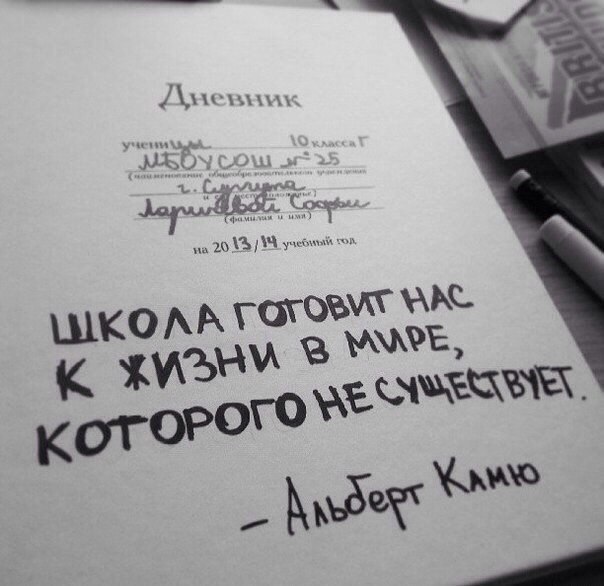 Дневник
ученицы 10 класса Г
МБОУСОШ №25
(наименование общеобразовательного учреждения
г. Сургута
и местоположение)
Софьи
(фамилия и имя)
на 2013/14 учебный год
ШКОЛА ГОТОВИТ НАС
К ЖИЗНИ В МИРЕ,
КОТОРОГО НЕ СУЩЕСТВУЕТ.
- Альберт Камю
BRITIS